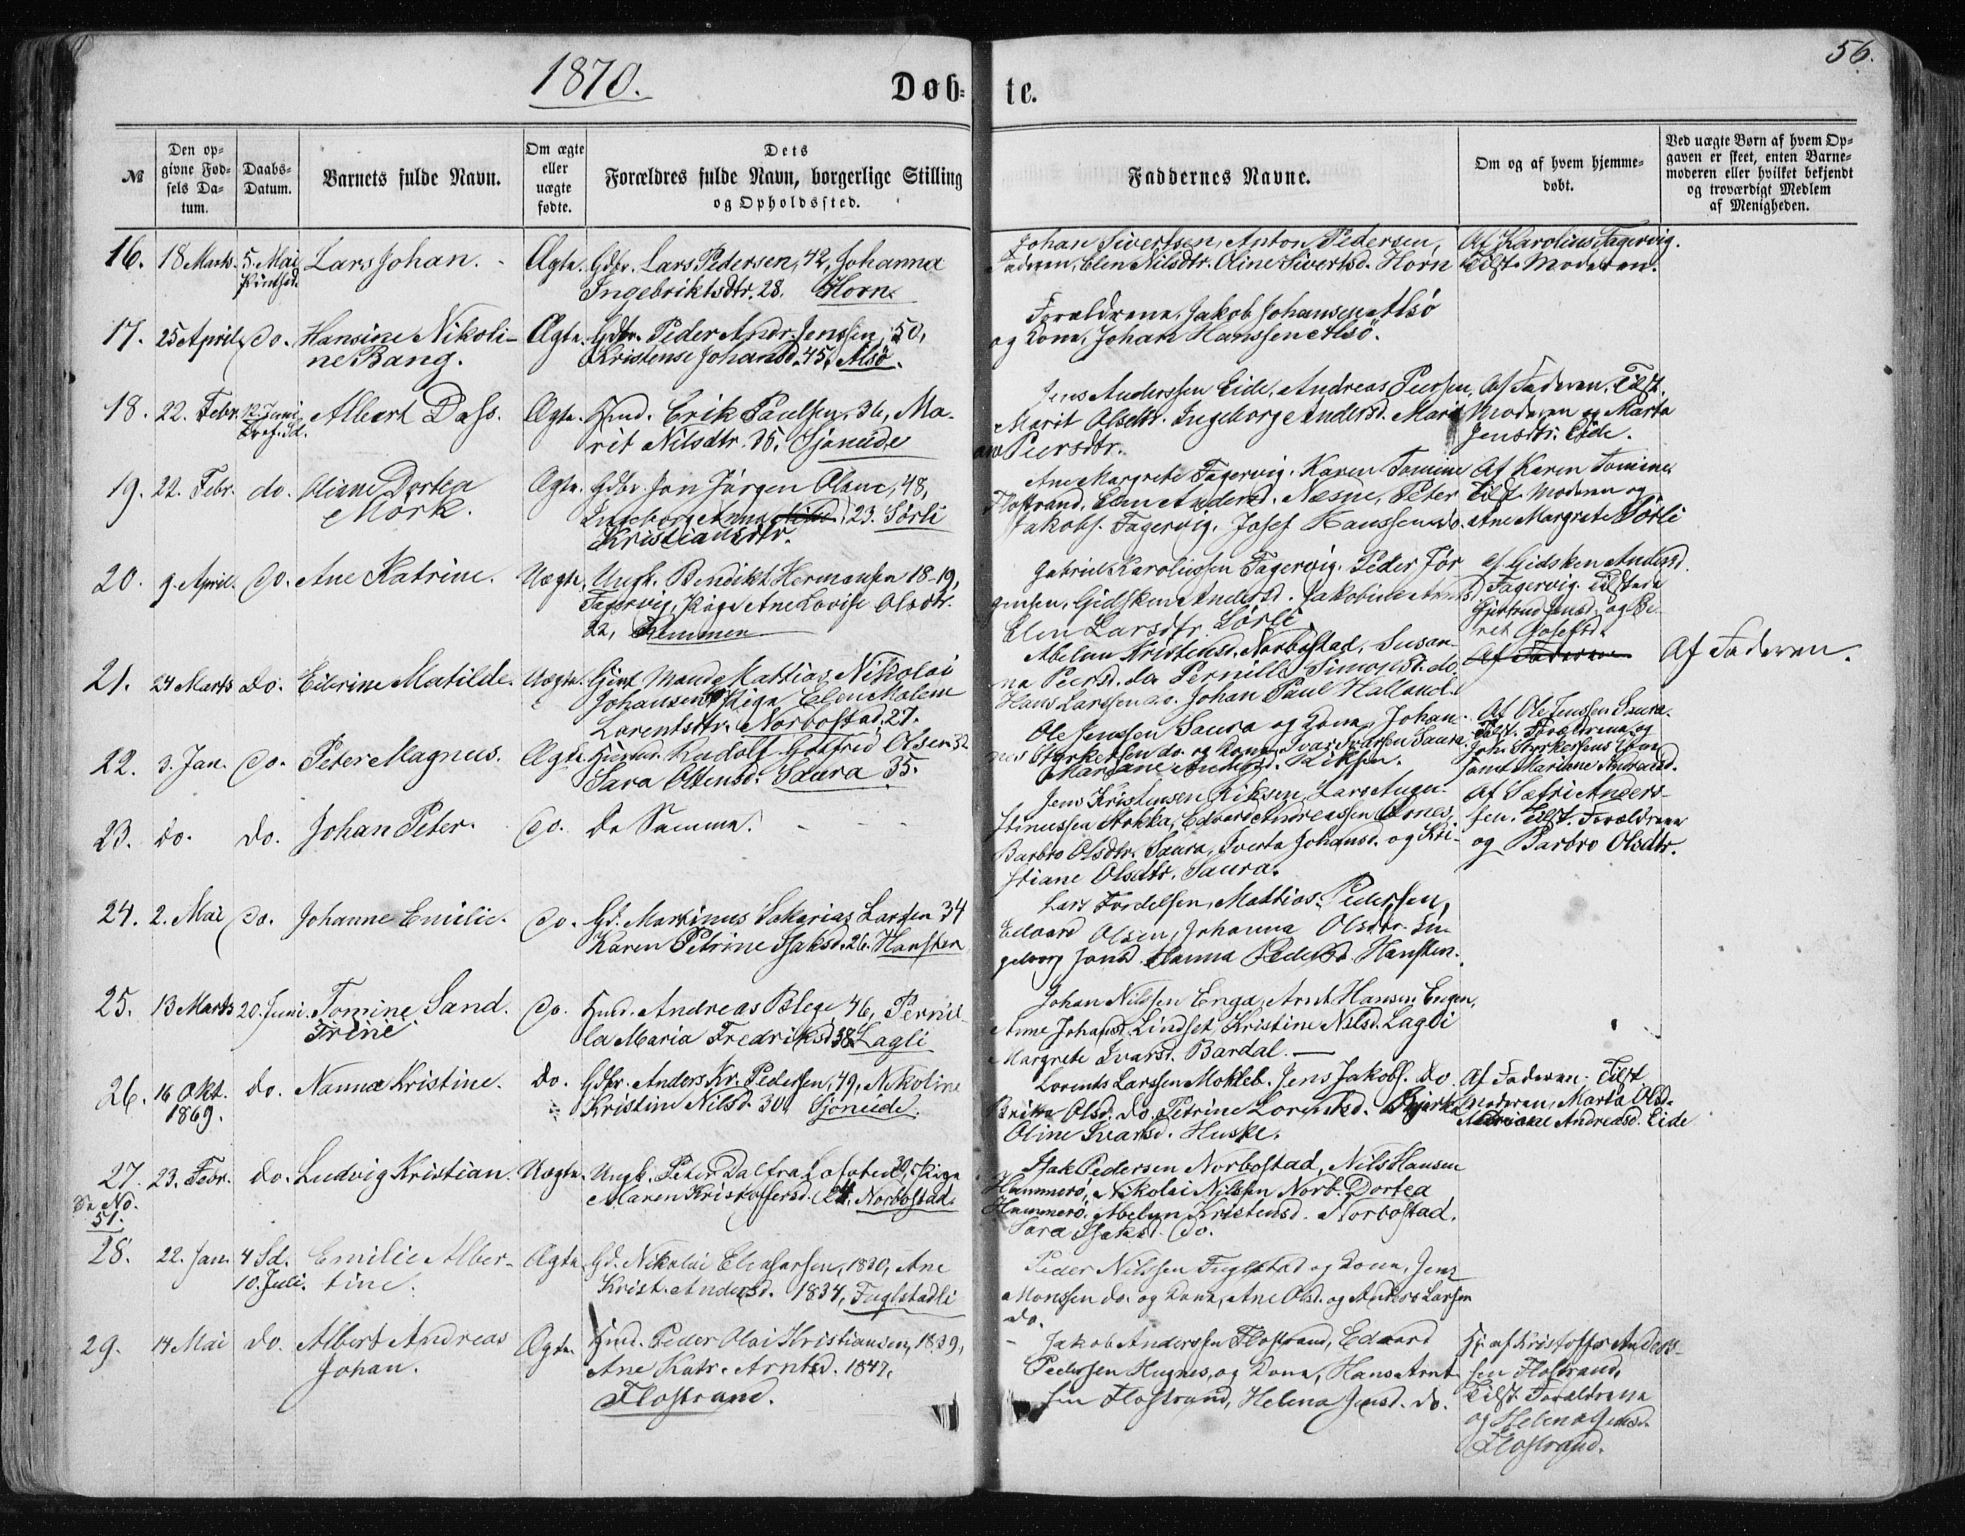 1870.
Døb-
te.
56.
№
Den op-
givne Fød-
sels Da-
tum.
Daabs-
Datum.
Barnets fulde Navn.
Om ægte
eller
uægte
fødte.
Dets
Forældres fulde Navn, borgerlige Stilling
og Opholdssted.
Faddernes Navne.
Om og af hvem hjemme-
døbt.
Ved uægte Børn af hvem Op-
gaven er skeet, enten Barne-
moderen eller hvilket bekjendt
og troværdigt Medlem
af Menigheden.
16. 18 Marts. 5. Mai Lars Johan. Ægte. Gdbr. Lars Pedersen, 42, Johanna
Ingebriktsdtr. 28. Horn.
Johan Sivertsen, Anton Pedersen,
Faderen, Elen Nilsdtr. Oline Sivertsd. Horn
Af Karolius Fagervig.
Tilst. Moderen.
17. 25 April. do. Hansine Nikoli-
ne Bang.
Ægte. Gdbr. Peder Andr. Jenssen, 50,
Kristense Johansd. 45, Alsø.
Forældrene, Jakob Johansen Alsø
og Kone, Johan Hanssen Alsø.
18. 22. Febr. 12. Juni
Tref. Sd.
Albert Dass. Ægte. Hmd. Erik Paulsen, 36, Ma-
rit Nilsdtr. 35. Sjoneide
Jens Anderssen Eide, Andreas Peersen,
Marit Olsdtr. Ingeborg Andersd. Mari
Peersdtr.
Af Faderen. Tilst.
Moderen og Marta
Jensdtr. Eide.
19. 22. Febr. do. Oliane Dortea
Mørk.
Ægte. Gdbr. Jon Jörgen Olsen, 48,
Ingeborg Anna 23. Sørli
Kristiansdtr.
Ane Margrete Fagervig. Karen Tomine
Flostrand, Elen Andersd. Næsne, Peter
Jakobs. Fagervig. Josef Hanssen do.
Af Karen Tomine
Tilst. Moderen og
Ane Margrete Sørli
20. 9. April. do. Ane Katrine. Uægte. Ungk. Bendikt Hermansen 18-19,
Fagervig, Pige Ane Lovise Olsdtr.
22, Hemmen
Gabriel Karoliussen Fagervig. Peder Jør-
gensen, Gidsken Andersd. Jakobine Arntsd.
Elen Larsdtr. Sørli
Af Gidsken Andersd.
Fagervig. Tilstede
Gjertrud Jensd. og Be-
ret Josefsd.
21. 24 Marts do. Edvine Matilde. Uægte. Givt Mand Mattias Nikolai
Johansen, Pige Elen Malene
Lorentsdtr. Norbostad, 27.
Abelun Kristensd. Norbostad, Susan-
na Peersd. do Pernille Simonsd. do.
Hans Larssen do. Johan Paul Halland.
Af Faderen
Af Faderen.
22. 3. Jan. do. Peter Magnus. Ægte. Husmd. Rudolf Gotfrid Olsen 32
Sara Olsensd. Saura 35.
Ole Jenssen Saura og Kone, Johan-
nes Styrkersen do. og Kone, Ivar Ivarsen Saura
Mariane Andersd. Riksen.
Af Ole Jenssen Saura.
Tilst. Forældrene og
Joh. Styrkersens Kone
samt Mariane Andersd.
23. do. do. Johan Peter. do. De Samme.
Jens Kristensen Riksen, Lars Augu-
stinussen Aakla, Edvard Andreassen Ornes,
Barbro Olsdtr. Saura, Iverta Johansd. og Kri-
stiane Olsdtr. Saura.
Af Safri Anders-
sen. Tilst. Forældrene
og Barbro Olsdtr.
24. 2. Mai do. Johanne Emilie. do. Gd. Martinus Sakarias Larsen 34
Karen Petrine Isaksd. 26. Hansten.
Lars Tordelsen, Mattias Pedersen,
Edvard Olsen, Johanna Olsdtr. In-
geborg Jonsd. Hanna Pedersd. Hansten.
25. 13 Marts 20. Juni. Tomine Sand.
Trine
do. Hmd. Andreas Blege 46, Pernil-
la Maria Fredriksd. 38 Lagli
Johan Nilssen Enga, Arnt Hansen Engen,
Anne Johansd. Lindset, Kristine Nilsd. Lagli
Margrete Ivarsd. Bardal.
26. 16 Okt.
1869.
do. Nanna Kristine. do. Gdbr. Anders Kr. Pedersen, 49, Nikoline
Kristine Nilsd. 30. Sjoneide.
Lorents Larssen Mokleb. Jens Jakobs. do
Britta Olsd. do. Petrine Lorentsd. Bjerk
Oline Ivarsd. Huske.
Af Faderen. Tilst.
Moderen, Marta Olsd.
Mariane Andreasd. Eide
27.
Se No.
51.
23. Febr. do. Ludvig Kristian. Uægte. Ungk. Peter Dal fra Lofoten 30, Pige
Maren Kristoffersd. 24. Norbostad.
Isak Pedersen Norbostad, Nils Hansen
Hammerø, Nikolai Nilssen Norb. Dortea
Hammerø. Abelun Kristensd. Norbostad.
Sara Isaksd. do.
28. 22. Jan. 4 Sd.
10. Juli.
Emilie Alber-
tine.
Ægte Gd. Nikolai Eliasarsen, 1820, Ane
Krist. Andersd. 1834, Fuglstadli
Peder Nilssen Fuglstad og Kone, Jens
Monssen do. og Kone, Ane Olsd. og Anders Larsen
do.
29. 14 Mai do. Albert Andreas
Johan.
Ægte. Hmd. Peder Olai Kristiansen, 1839,
Ane Katr. Arntsd. 1847.
Flostrand.
Jakob Anderssen Flostrand, Edvard
Pedersen Hugnes, og Kone, Hans Arnt-
sen Flostrand, Helena Jensd. do.
Hj. af Kristoffer Anders-
sen Flostrand,
Tilst. Forældrene
og Helena Jensd.
Flostrand.